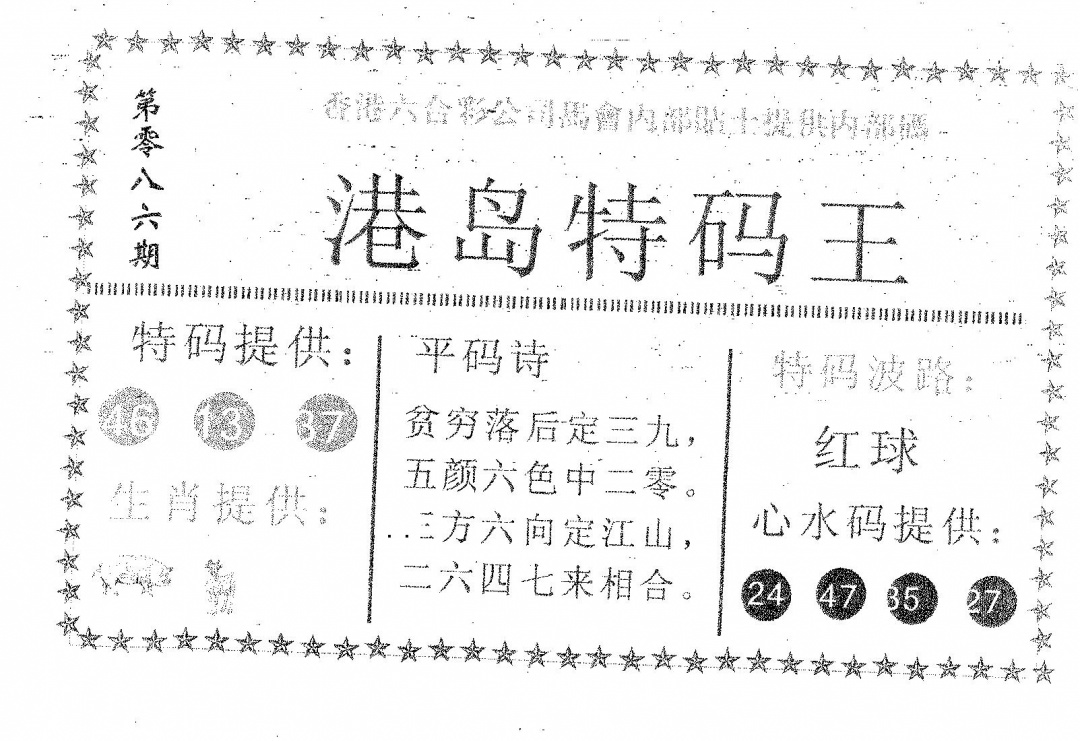 第零八六期
香港六合彩公司馬會内部貼士提供内部碼
港岛特码王
特码提供：
46 13 37
生肖提供：
平码诗
贫穷落后定三九，
五颜六色中二零。
三方六向定江山，
二六四七来相合。
特码波路：
红球
心水码提供：
24 47 35 27